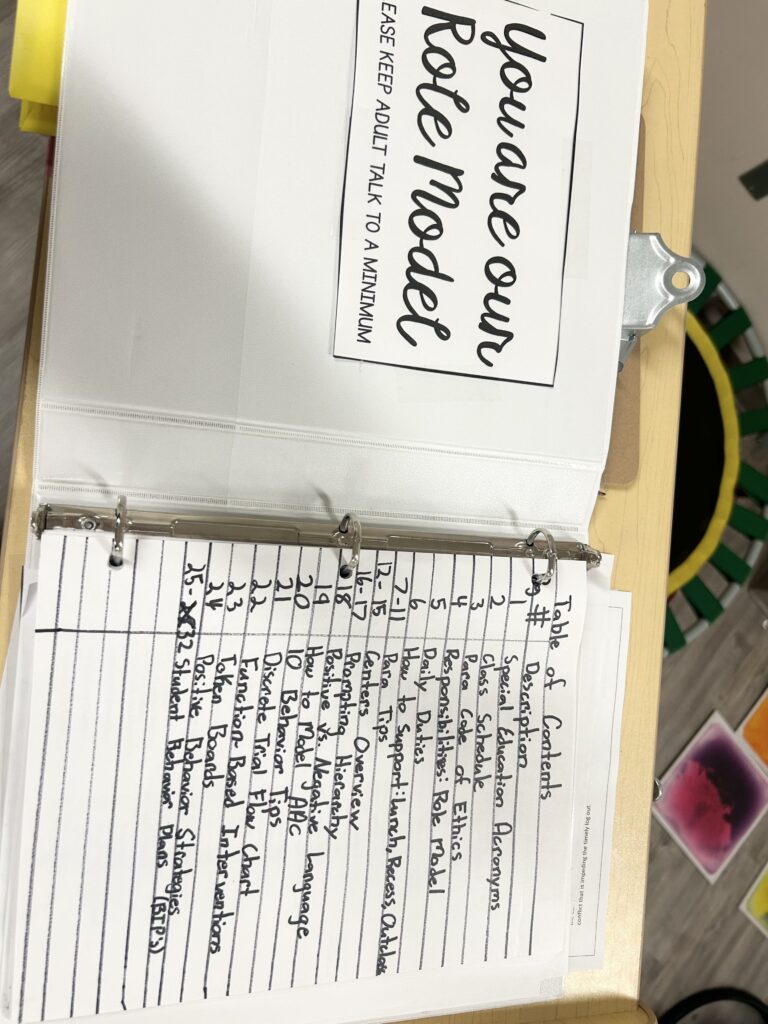 You are our
Role Model
EASE KEEP ADULT TALK TO A MINIMUM
Table of Contents
pg # Description
1 Special Education Acronyms
2 Class Schedule
3 Para Code of Ethics
4 Responsibilities: Role Model
5 Daily Duties
6 How to Support: Lunch, Recess, Outclass
7-11 Para Tips
12-15 Centers Overview
16-17 Prompting Hierarchy
18 Positive vs. Negative Language
19 How to Model AAC
20 10 Behavior Tips
21 Discrete Trial Flow Chart
22 Function-Based Interventions
23 Token Boards
24 Positive Behavior Strategies
25-32 Student Behavior Plans (BIP's)
conflict that is impacting the timely log out